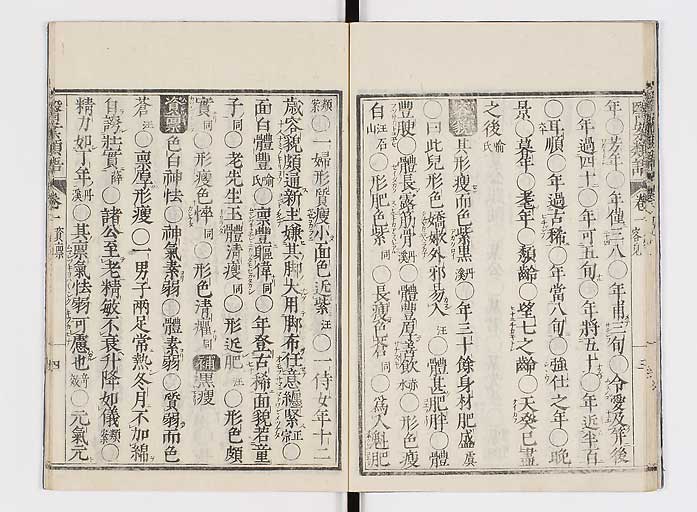 年○芳年○年僅三八○年甫三旬○令愛及笄後
○年過四十○年可五旬○年將五十○年近半百
○耳順○年過古稀○年當八旬○強仕之年○晩
景○暮年○耄年○頽齡○望七之齡○天癸已盡
之後
其形瘦面色紫黑○年三十餘身材肥盛
○曰此兒形色嬌嫩外邪易入○體甚肥胖○體
豐腴○體長露筋骨○體豐厚喜飲○形色瘦
白○形肥色紫同○長瘦色蒼同○爲人魁肥
○一婦形質瘦小面色近紫汪○一侍女年十二
歲容貌頗通新主嫌其脚大用脚布任意纏緊○
面白體豐○禀豐軀偉同○年登古稀面貌若童
子同○老先生玉體清瘦同○形近肥汪○形色頗
實同○形瘦色悴同○形色清癯同 補黒瘦
資禀 色白神怯○神氣素弱○體素弱○質弱而色
蒼汪○禀厚形瘦○一男子兩足常熱冬月不加綿
自誇壯實薛○諸公至老精敏不衰升降如儀類案
精力如丁年丹溪○其禀氣怯弱可慮也○元氣元
醫案類語 卷一 資禀 四